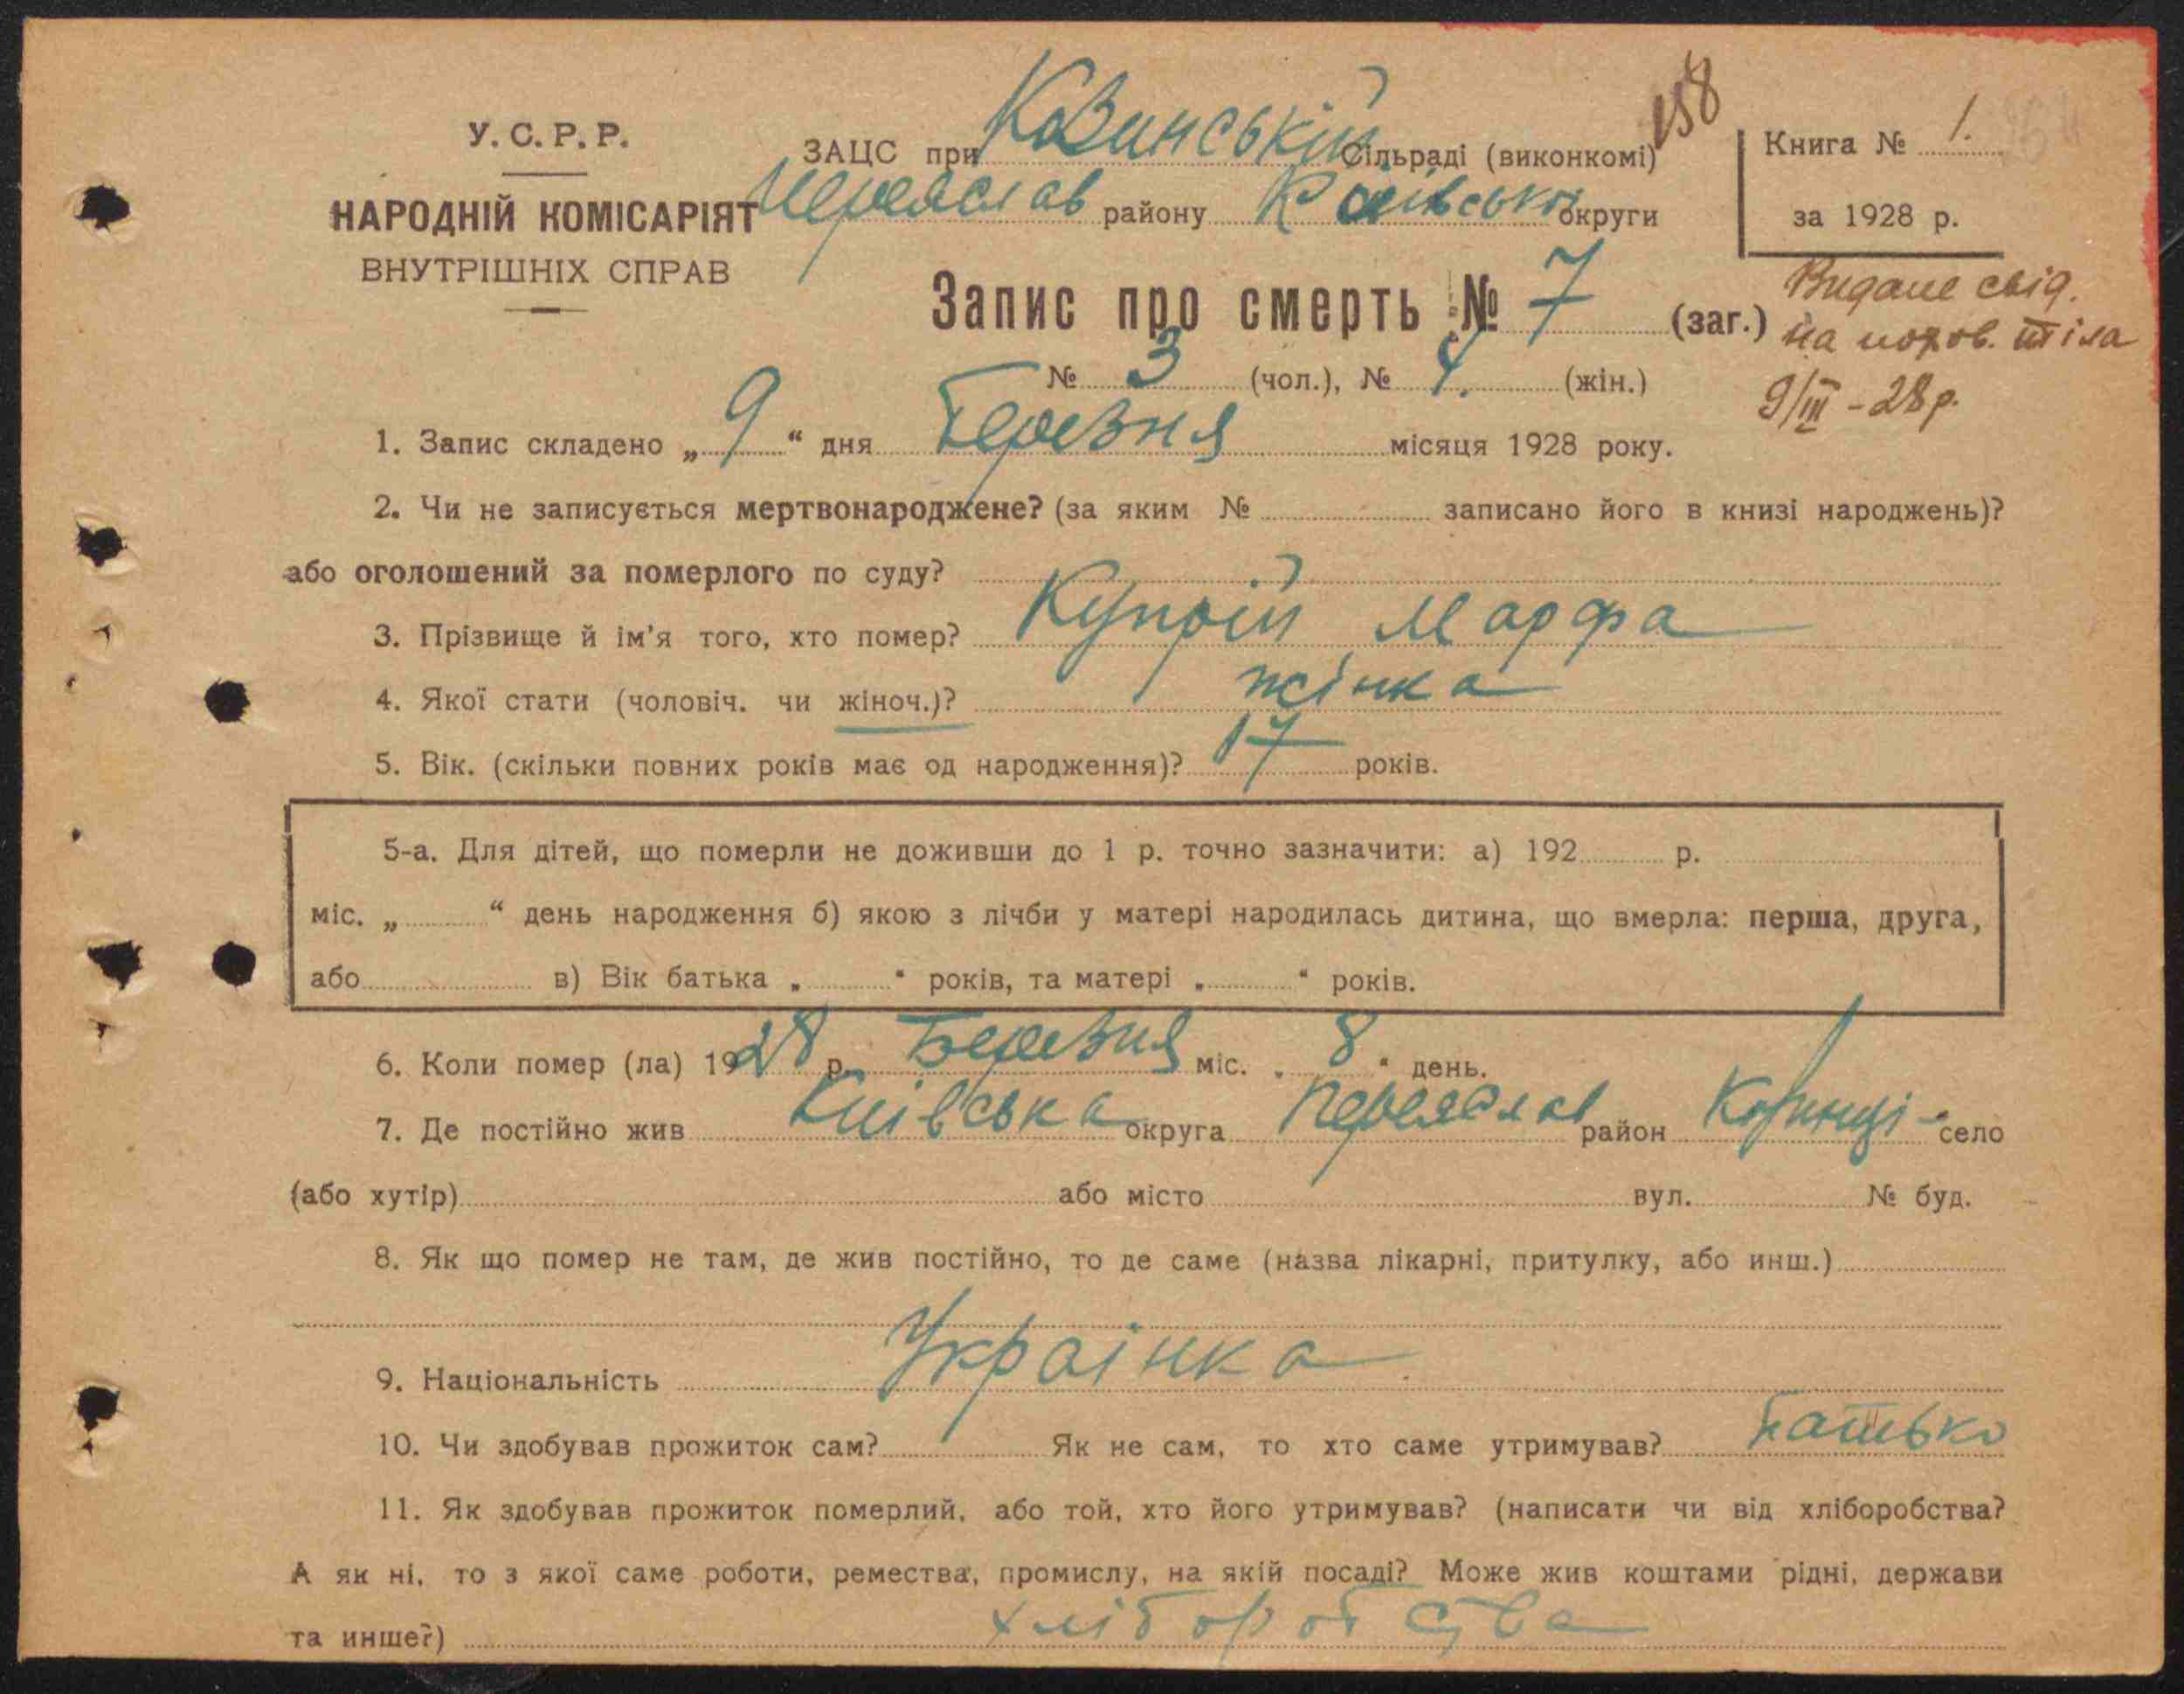 158
У. С. Р. Р.
НАРОДНІЙ КОМІСАРІЯТ
ВНУТРІШНІХ СПРАВ
ЗАЦС при Козинській Сільраді (виконкомі)
Переяслав району Київської округи
Книга № 1.
за 1928 р.
Запис про смерть № 7 (заг.)
Видане свід.
на похов. тіла
9/III - 28 р.
№ 3 (чол.), № 4. (жін.)
1. Запис складено „ 9 “ дня Березня місяця 1928 року.
2. Чи не записується мертвонароджене? (за яким № записано його в книзі народжень)?
або оголошений за померлого по суду?
3. Прізвище й ім'я того, хто помер? Купрій Марфа
4. Якої стати (чоловіч. чи жіноч.)? жінка
5. Вік. (скільки повних років має од народження)? 17 років.
5-а. Для дітей, що померли не доживши до 1 р. точно зазначити: а) 192 р.
міс. „ “ день народження б) якою з лічби у матері народилась дитина, що вмерла: перша, друга,
або в) Вік батька „ “ років, та матері „ “ років.
6. Коли помер (ла) 1928 р. Березня міс. „ 8 “ день.
7. Де постійно жив Київська округа Переяслав район Коринці село
(або хутір) або місто вул. № буд.
8. Як що помер не там, де жив постійно, то де саме (назва лікарні, притулку, або инш.)
9. Національність Українка
10. Чи здобував прожиток сам? Як не сам, то хто саме утримував? Батько
11. Як здобував прожиток померлий, або той, хто його утримував? (написати чи від хліборобства?
А як ні, то з якої саме роботи, ремества, промислу, на якій посаді? Може жив коштами рідні, держави
та инше?) хліборобства